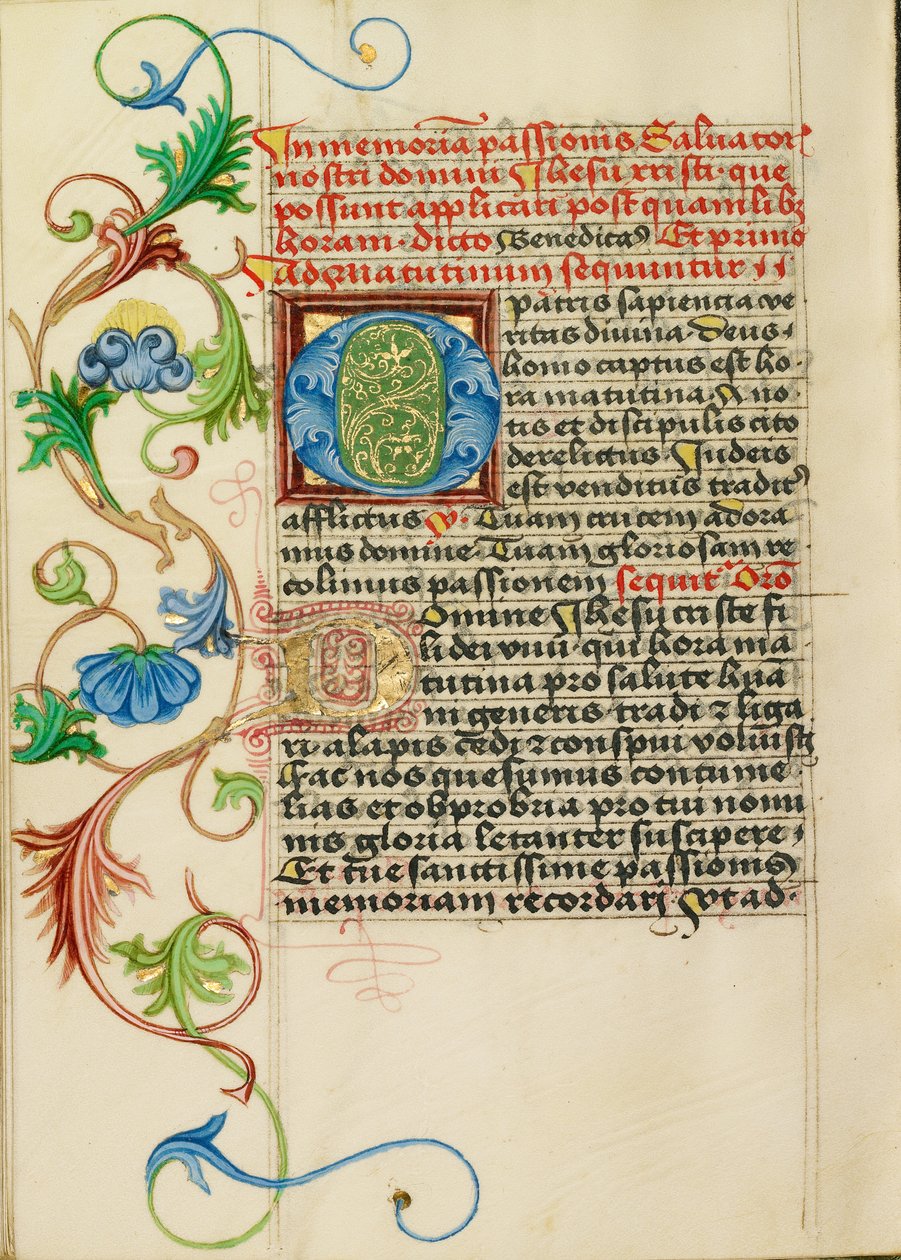 In memoriā passionis Salvatorꝭ
nostri domini Jhesu xpisti· que
possunt applicari post quamlibꝫ
horam· dicto Benedicaꝰ Et primo
Ad Matutinum sequuntur
Patris sapiencia ve
ritas divina Deus·
homo captus est ho·
ra matutina· A no·
tis et discipulis cito
derelictus Iudeis
est venditus traditꝰ
afflictus ℣· Tuam crucem adora·
mus domine· Tuam gloriosam re·
colimus passionem sequitᷣ Orō
Domine Jhesu criste fi
li dei vivi· qui hora ma
tutina pro salute huā
ni generis tradi ⁊ liga
ri· alapis cedi ⁊ conspui voluisti
fac nos quesumus contume·
lias et obprobria pro tui nomi
nis gloria letanter suscipere·
Et tue sanctissime passionis
memoriam recordari Vt ad·